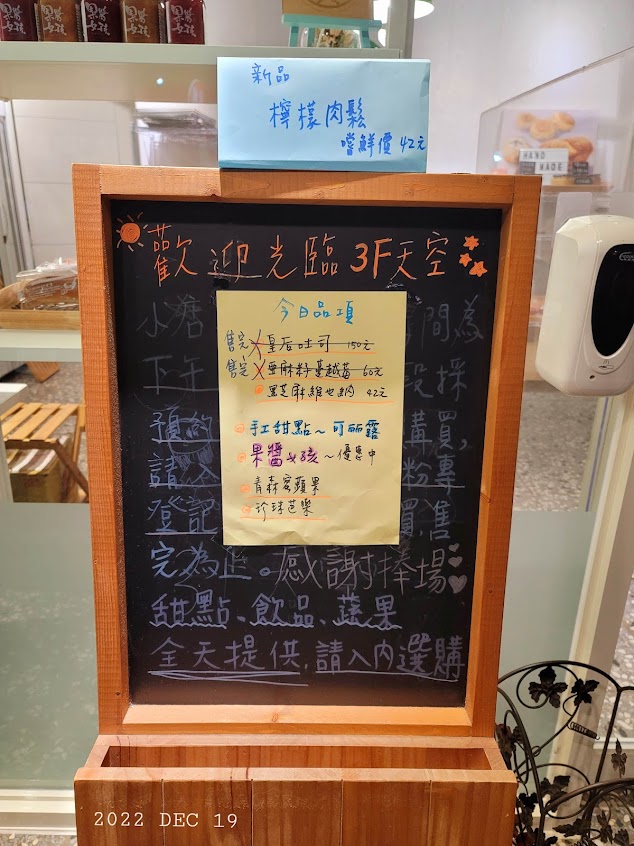 果醬女孩
果醬女孩
果醬女孩
新品
檸檬肉鬆
嚐鮮價 42元
HAND
MADE
歡迎光臨 3F天空
今日品項
售完 皇后吐司 150元
售完 亞麻籽蔓越莓 60元
黑芝麻維也納 42元
手工甜點~可麗露
果醬女孩~優惠中
青森蜜蘋果
珍珠芭樂
小舖 時間為
下午 段採
預約 購買,
請入 粉專
登記 買,售
完為止。感謝捧場
甜點、飲品、蔬果
全天提供,請入內選購
2022 DEC 19